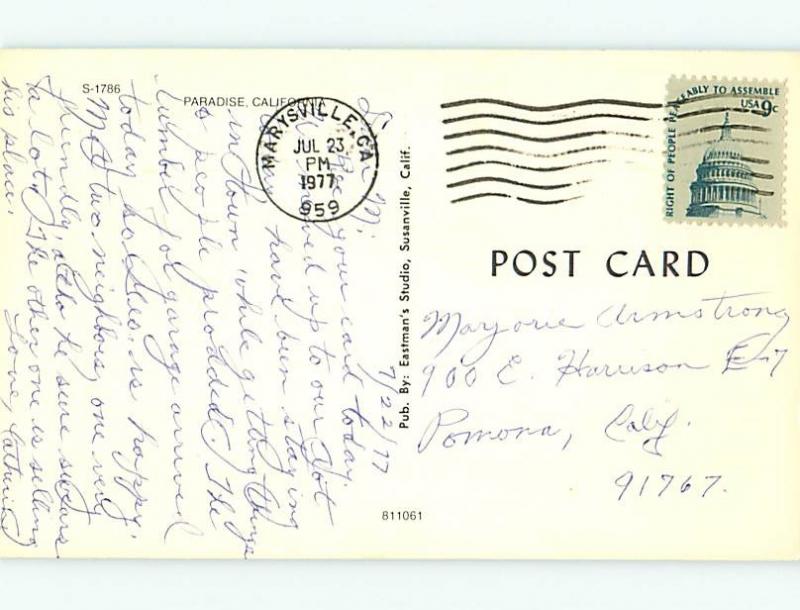 S-1786
PARADISE, CALIFORNIA
MARYSVILLE, CA
JUL 23
PM
1977
959
RIGHT OF PEOPLE PEACEABLY TO ASSEMBLE
USA 9c
POST CARD
Pub. By: Eastman's Studio, Susanville, Calif.
811061
Marjorie Armstrong
900 E. Harrison E-7
Pomona, Calif.
91767.
7/22/77
Dear M:
your card today.
moved up to our lot
have been staying
in town while getting things
& people prodded. The
lumber for garage arrived
today so Geo. is happy.
Met two neighbors, one very
friendly, altho he sure swears
a lot. The other one is selling
his place.
Love, Catherine